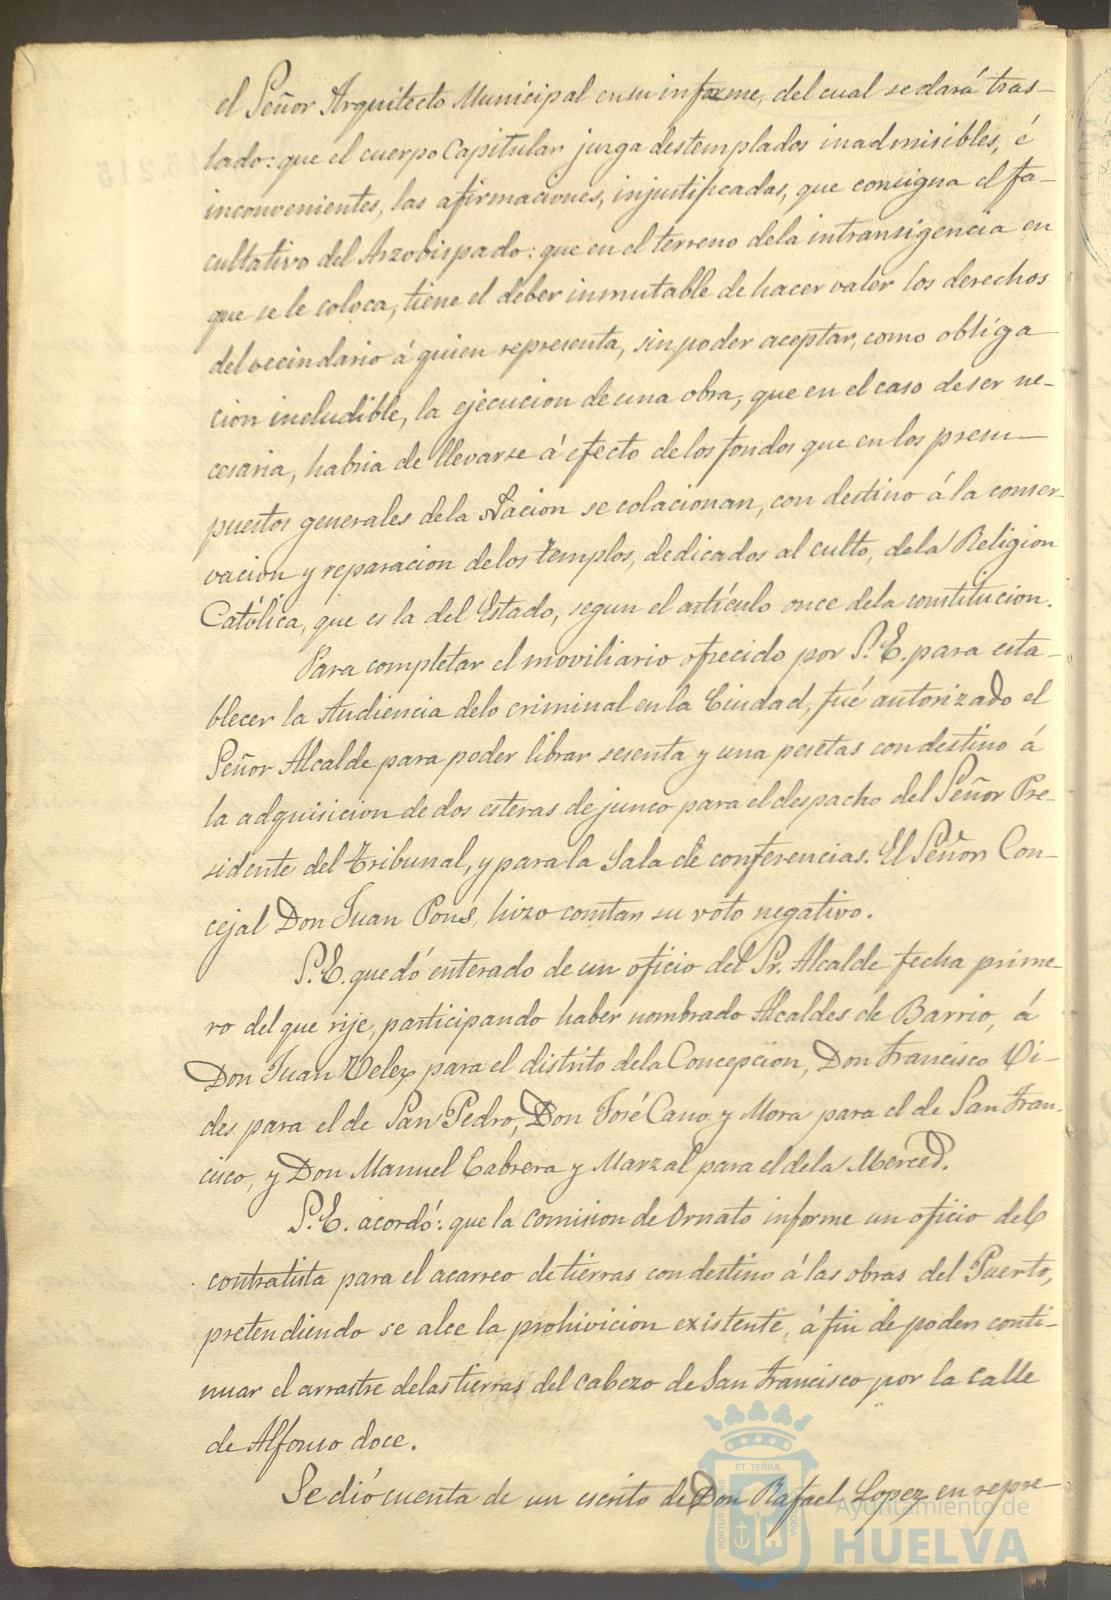 el Señor Arquitecto Municipal en su informe, del cual se dará tras-
lado: que el cuerpo Capitular juzga destemplados inadmisibles, é
inconvenientes, las afirmaciones, injustificadas, que consigna el fa-
cultativo del Arzobispado: que en el terreno de la intransigencia en
que se le coloca, tiene el deber inmutable de hacer valer los derechos
del vecindario á quien representa, sin poder aceptar, como obliga
cion ineludible, la ejecucion de una obra, que en el caso de ser ne-
cesaria, habria de llevarse á efecto de los fondos que en los presu-
puestos generales de la Nacion se colacionan, con destino á la conser-
vacion y reparacion de los templos, dedicados al culto, de la Religion
Católica, que es la del Estado, segun el artículo once de la constitucion.
Para completar el moviliario ofrecido por S.E. para esta-
blecer la Audiencia de lo criminal en la Ciudad, fué autorizado el
Señor Alcalde para poder librar sesenta y una pesetas con destino á
la adquisicion de dos esteras de junco para el despacho del Señor Pre-
sidente del Tribunal, y para la Sala de conferencias. El Señor Con-
cejal Don Juan Pons, hizo constar su voto negativo.
S.E. quedó enterado de un oficio del Sr. Alcalde fecha prime-
ro del que rije, participando haber nombrado Alcaldes de Barrio, á
Don Juan Velez para el distrito de la Concepcion, Don Francisco Vi-
des para el de San Pedro, Don José Cano y Mora para el de San Fran-
cisco, y Don Manuel Cabrera y Marzal para el de la Merced.
S.E. acordó: que la comision de Ornato informe un oficio del
contratista para el acarreo de tierras con destino á las obras del Puerto,
pretendiendo se alce la prohivicion existente, á fin de poder conti-
nuar el arrastre de las tierras del cabezo de San Francisco por la calle
de Alfonso doce.
Se dió cuenta de un escrito de Don Rafael Lopez en repre-
ET TERRÆ
PORTUS
Ayuntamiento de
HUELVA